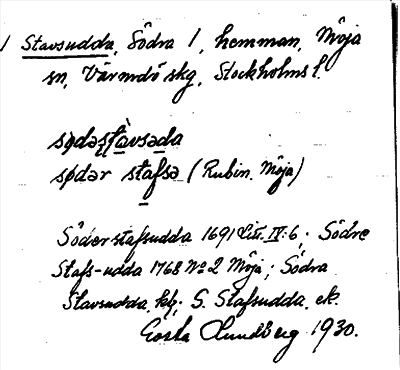 1 Stavsudda, Södra 1, hemman, Möja
sn, Värmdö skg, Stockholms l.
södəstàvsəda
södər stafsə (Rubin, Möja)
Söderstafsudda 1691 Lit. IV:6; Södre
Stafs-udda 1768 No 2 Möja; Södra
Stavsudda, kbg; S. Stafsudda, ek.
Gösta Lundberg 1930.